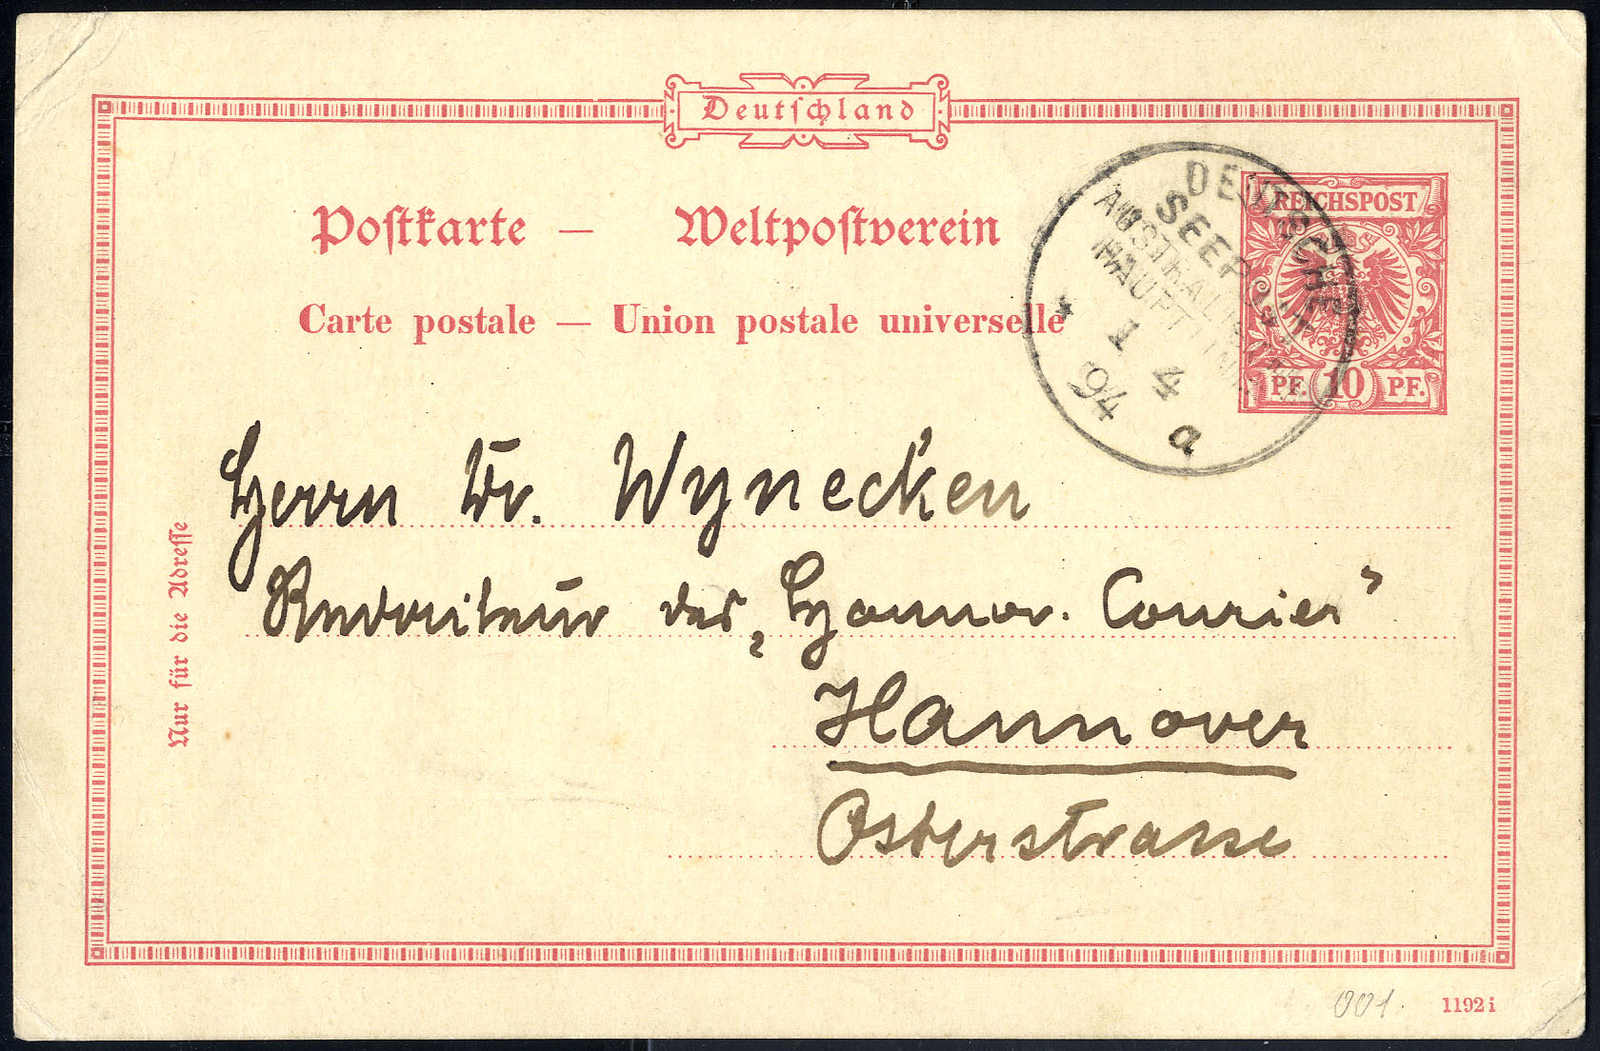 Deutschland
Postkarte — Weltpostverein
Carte postale — Union postale universelle
REICHSPOST
PF. 10 PF.
DEUTSCHE
SEEPOST
AUSTRALISCHE
HAUPTLINIE
* 1 4
94
a
Herrn Dr. Wynecken
Redacteur des „Hannov. Courier"
Hannover
Osterstrasse
Nur für die Adresse
001.
1192 i